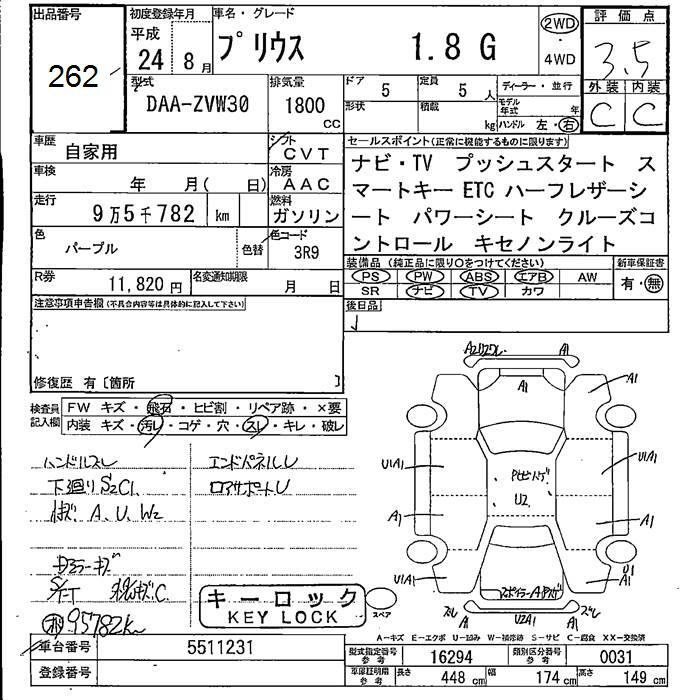 出品番号
262
初度登録年月
平成
24年 8月
車名・グレード
プリウス 1.8 G
2WD
・
4WD
評価点
3.5
外装 内装
C C
型式
DAA-ZVW30
排気量
1800
CC
ドア
5
定員
5 人
形状
積載
kg
ディーラー・並行
モデル年式 年
ハンドル 左・右
車歴
自家用
シフト
CVT
車検
年 月( 日)
冷房
AAC
走行
9万5千782 km
燃料
ガソリン
色
パープル
色替
色コード
3R9
R券
11,820 円
名変通知期限
月 日
セールスポイント(正常に機能するものに限ります)
ナビ・TV プッシュスタート ス
マートキー ETC ハーフレザーシ
ート パワーシート クルーズコ
ントロール キセノンライト
装備品(純正品に限り○をつけてください)
PS PW ABS エアB AW
SR ナビ TV カワ
新車保証書
有・無
後日品
注意事項申告欄(不具合内容等は具体的に記入して下さい)
修復歴 有〔箇所 〕
検査員
記入欄
FW キズ・飛石・ヒビ割・リペア跡・×要
内装 キズ・汚レ・コゲ・穴・スレ・キレ・破レ
ハンドルスレ
下廻りS2C1
A、U、W2
エンドパネルU
ロアサポートU
95782km
キーロック
KEY LOCK
スペア
A1
A1
A1
A1
U1A1
U1A1
U2
A1
A1
U1A1
U1
A1
スレ
U2A1
スレ
A-キズ E-エクボ U-凹み W-補修跡 S-サビ C-腐食 XX-交換済
車台番号
5511231
登録番号
型式指定番号
参考
16294
類別区分番号
参考
0031
車庫証明用
参考
長さ 448 cm
幅 174 cm
高さ 149 cm